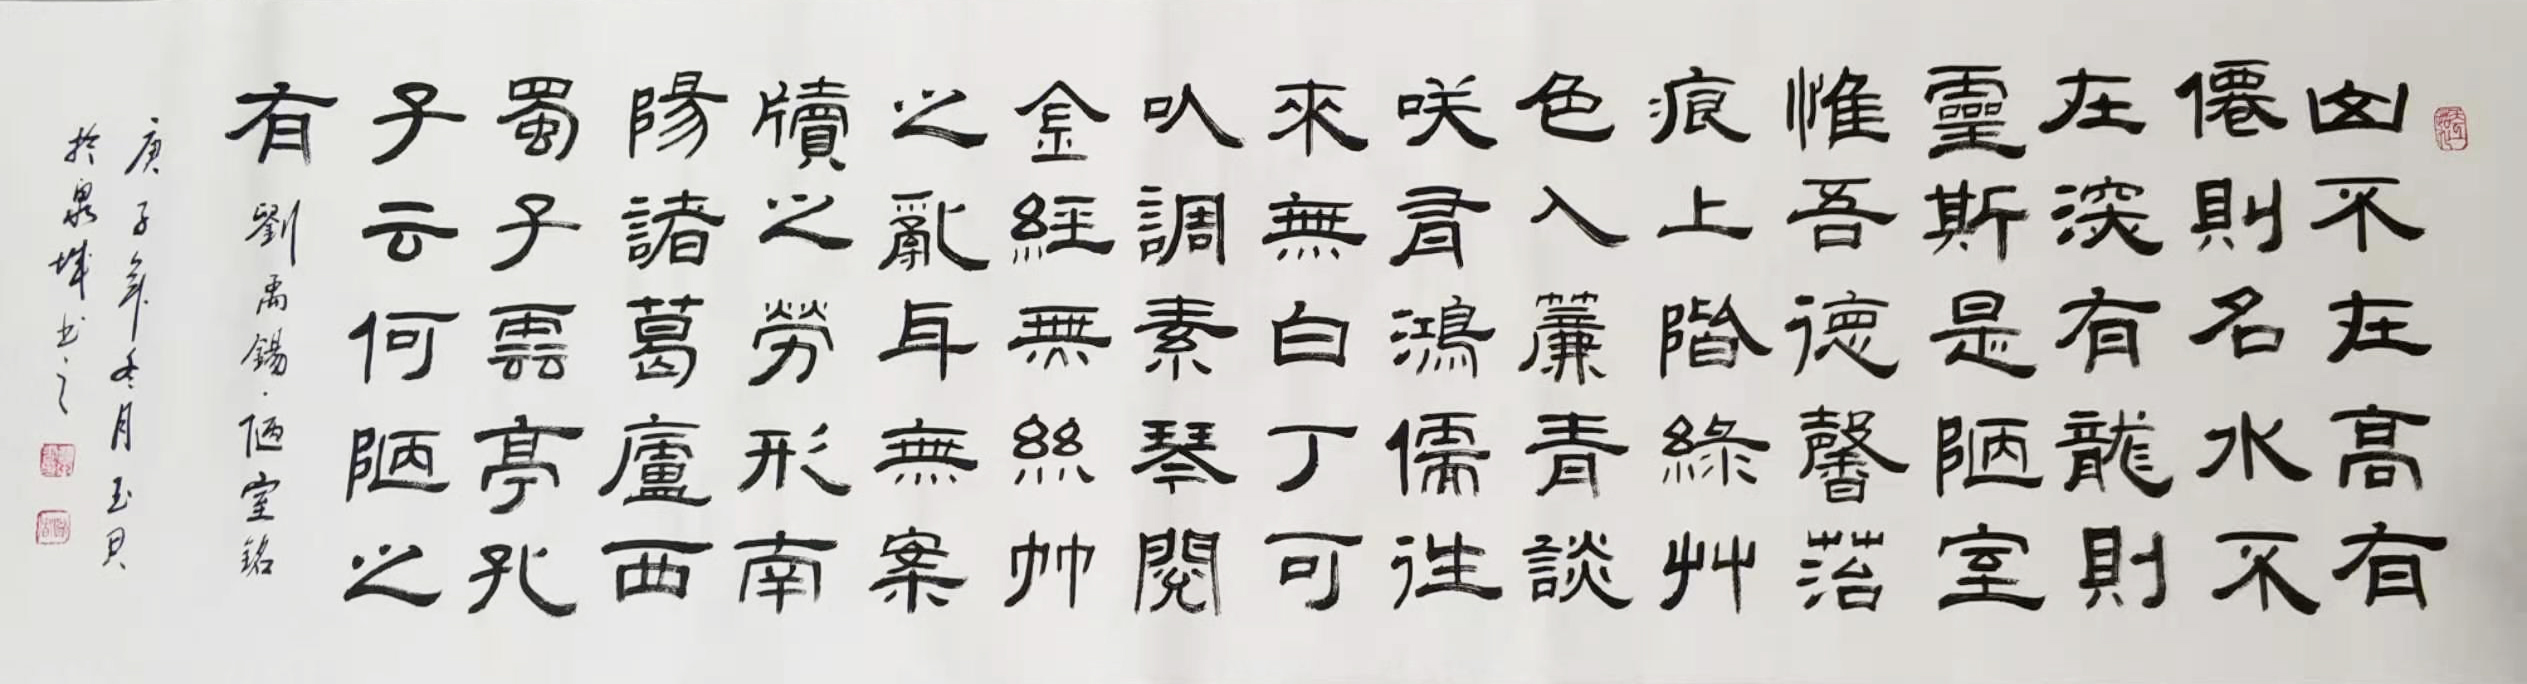 山不在高有
僊則名水不
在深有龍則
靈斯是陋室
惟吾德馨苔
痕上階綠艸
色入簾青談
咲有鴻儒往
來無白丁可
㕥調素琴閱
金經無絲竹
之亂耳無案
牘之勞形南
陽諸葛廬西
蜀子雲亭孔
子云何陋之
有 劉禹錫·陋室銘
庚子年冬月玉貝
於泉城书之